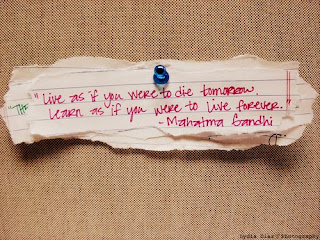 "Live as if you were to die tomorrow,
learn as if you were to live forever."
- Mahatma Gandhi